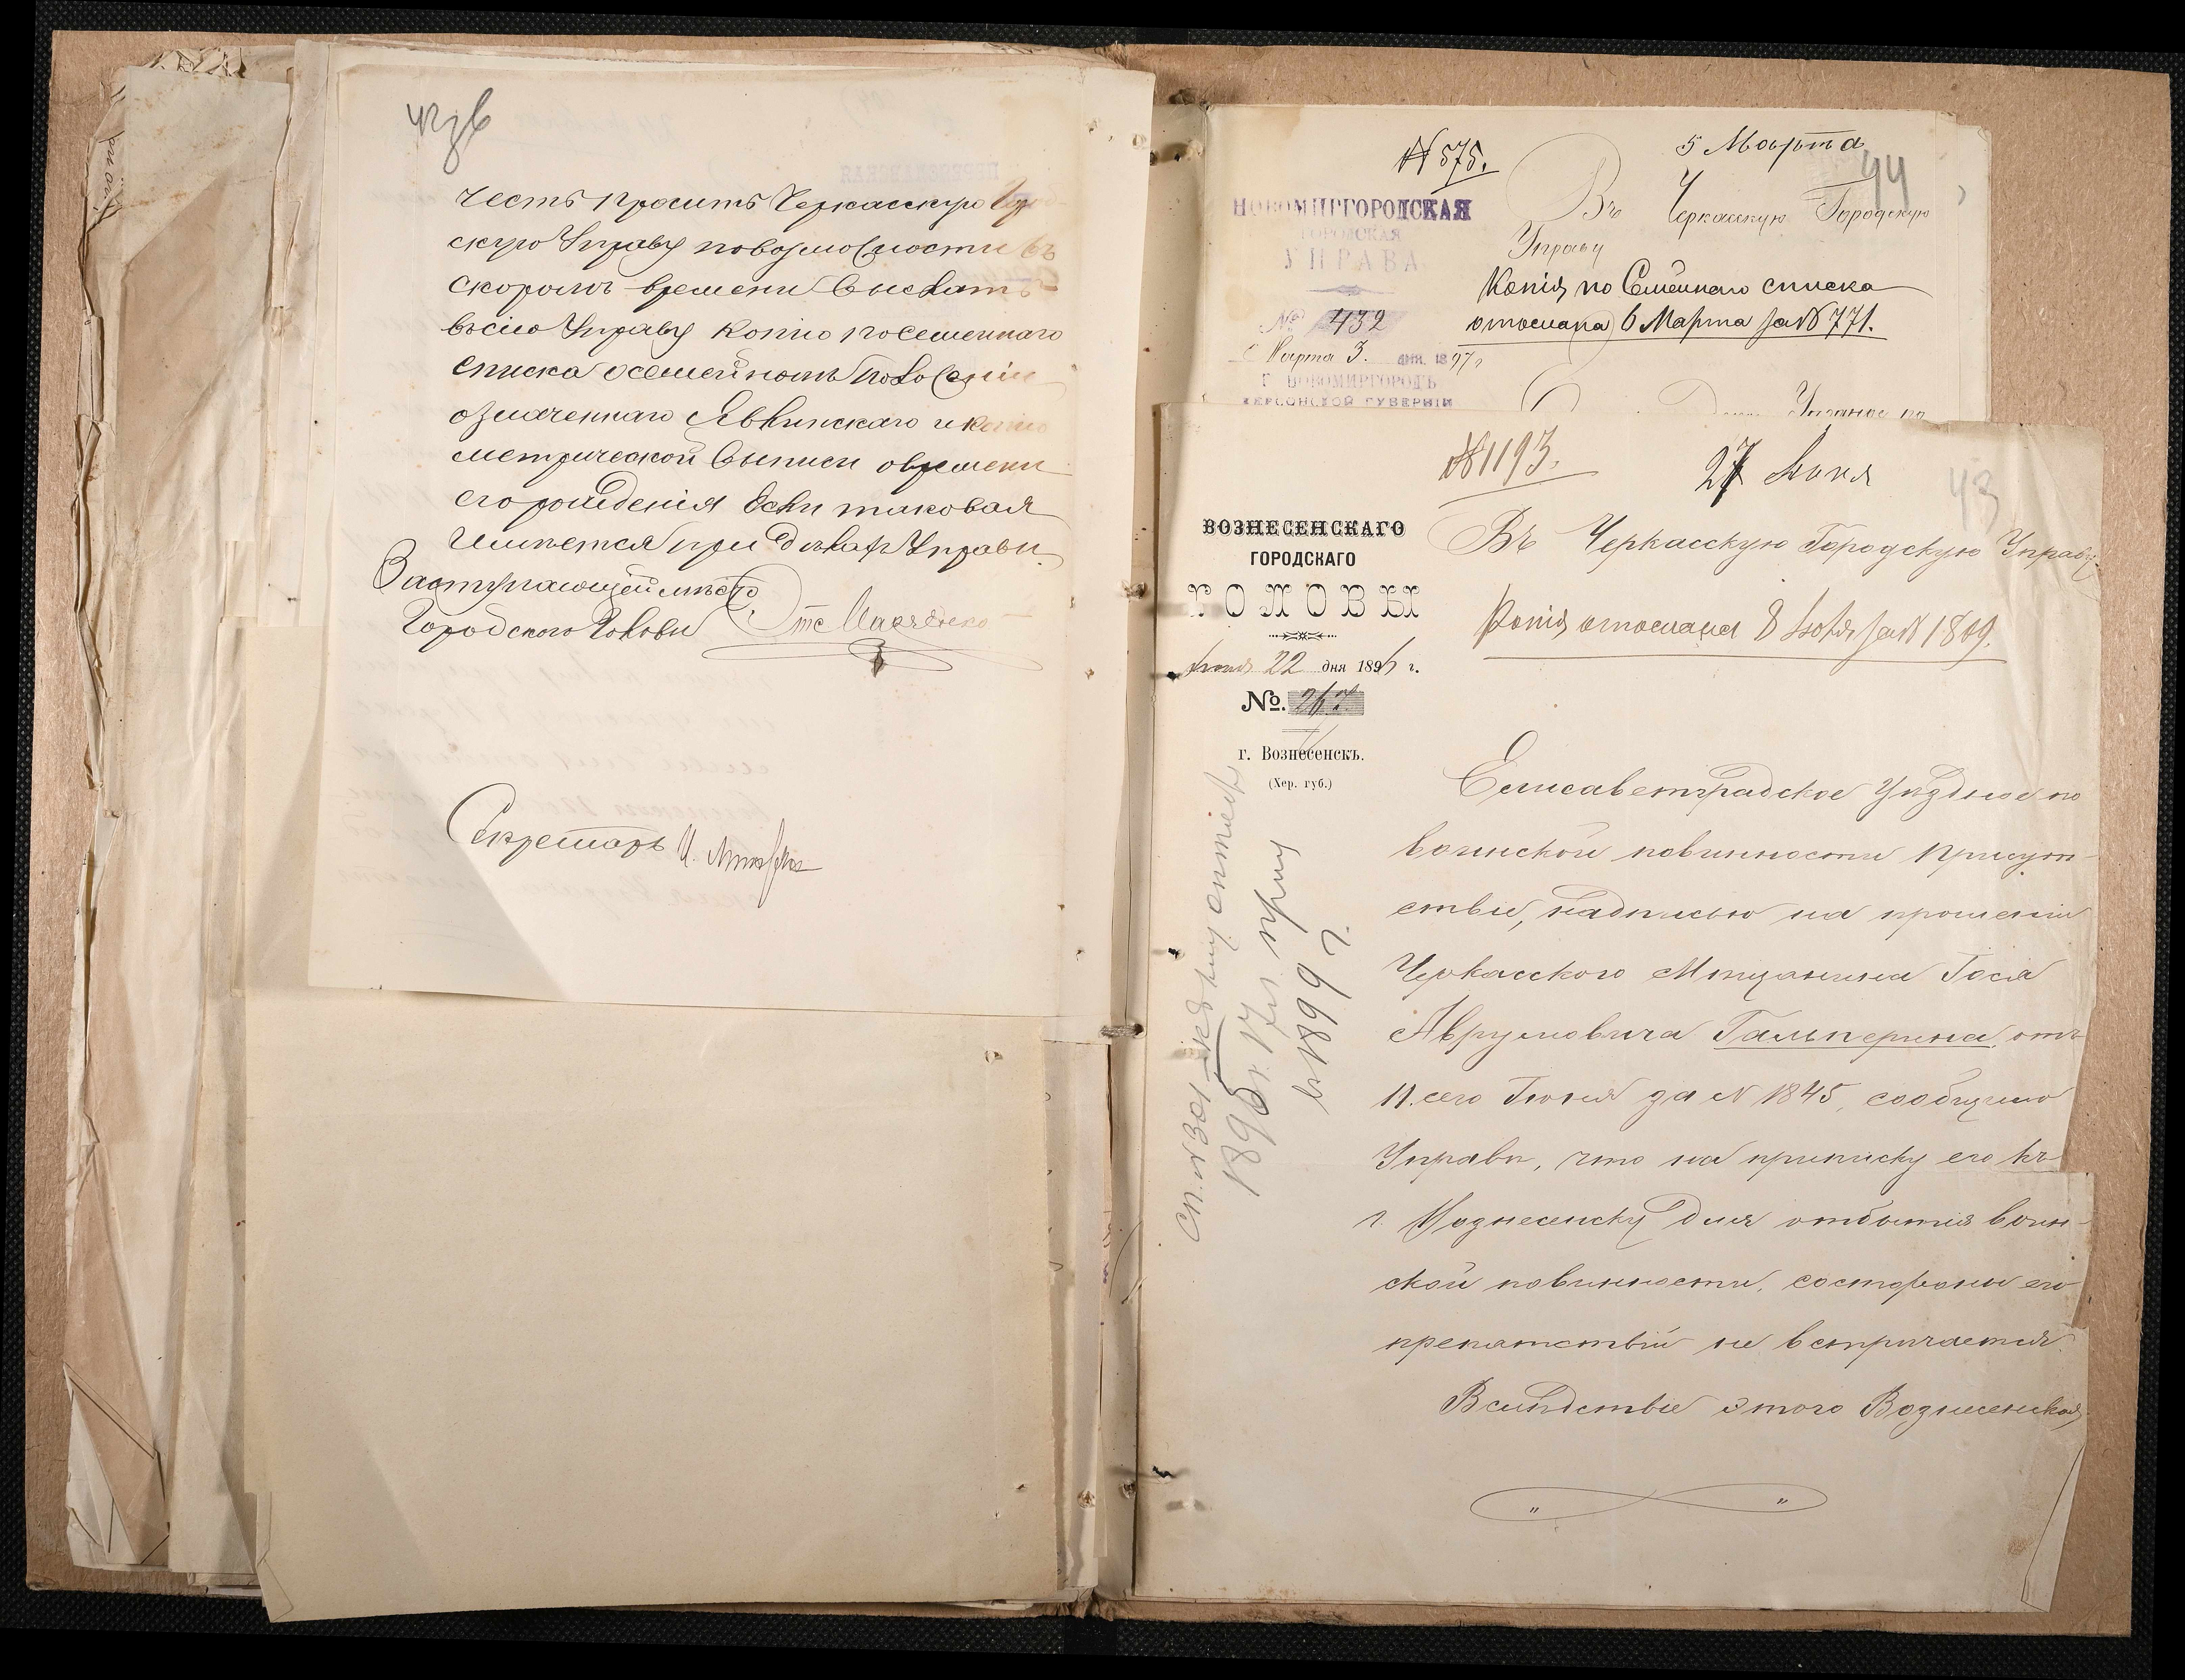 честь просить Черкасскую
скую Управу повозможности въ
скоромъ времени выслать
всію Управу копію посемейнаго
списка осемейномъ положеніи
означеннаго Явлинскаго и копію
метрической выписи овремени
его рожденія Если таковая
имѣется при дѣлахъ Управы.
Заступающій мѣсто
Городского Головы
Секретарь
№ 575.
5 Марта
44
НОВОМИРГОРОДСКАЯ
ГОРОДСКАЯ
УПРАВА
№ 432
Марта 3. дня 1897
г. НОВОМИРГОРОДЪ
ХЕРСОНСКОЙ ГУБЕРНІИ
Въ Черкасскую Городскую
Управу
Копія по Семейнаго списка
отослана 6 Марта за № 771.
№ 1193.
27 Июня
43
ВОЗНЕСЕНСКАГО
ГОРОДСКАГО
ГОЛОВЫ
Іюня 22 дня 1896 г.
№. 267
г. Вознесенскъ.
(Хер. губ.)
Въ Черкасскую Городскую Управу
Копія отослана 8 Июля за № 1809.
Елисаветградское Уѣздное по
воинской повинности Присут-
ствіе, надписью на прошеніи
Черкасского Мѣщанина Гося
Аврумовича Гальперина, отъ
11 сего Іюня за № 1845, сообщило
Управѣ, что на приписку его къ
г. Вознесенску для отбытія воин-
ской повинности, состороны его
препятствій не встрѣчается.
Вслѣдствіе этого Вознесенская
1896 г. 17 л. приз
въ 1899 г.